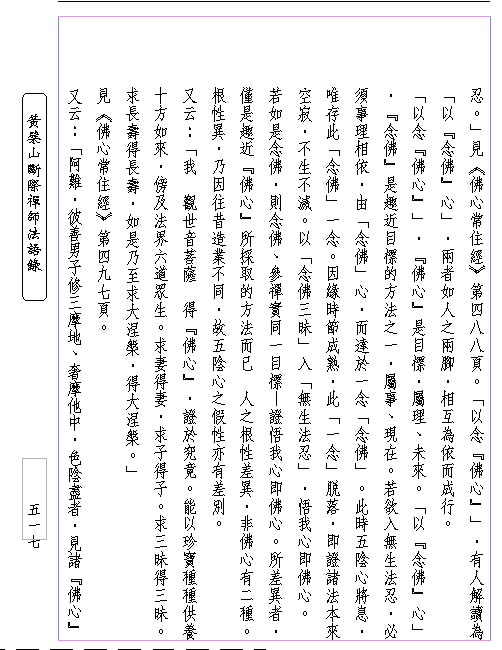 忍。」見《佛心常住經》第四八八頁。「以念『佛心』」，有人解讀為
「以『念佛』心」，兩者如人之兩腳，相互為依而成行。
「以念『佛心』」，『佛心』是目標，屬理、未來。「以『念佛』心」
，『念佛』是趣近目標的方法之一，屬事、現在。若欲入無生法忍，必
須事理相依，由「念佛」心，而達於一念「念佛」。此時五陰心將息，
唯存此「念佛」一念。因緣時節成熟，此「一念」脫落，即證諸法本來
空寂，不生不滅。以「念佛三昧」入「無生法忍」，悟我心即佛心。
若如是念佛，則念佛、參禪實同一目標—證悟我心即佛心。所差異者，
僅是趣近『佛心』所採取的方法而已　人之根性差異，非佛心有二種。
根性異，乃因往昔造業不同，故五陰心之假性亦有差別。
又云：「我　觀世音菩薩　得『佛心』，證於究竟。能以珍寶種種供養
十方如來，傍及法界六道眾生。求妻得妻，求子得子。求三昧得三昧。
求長壽得長壽，如是乃至求大涅槃，得大涅槃。」
見《佛心常住經》第四九七頁。
又云：「阿難，彼善男子修三摩地、奢摩他中，色陰盡者，見諸『佛心』
黃檗山斷際禪師法語錄
五一七